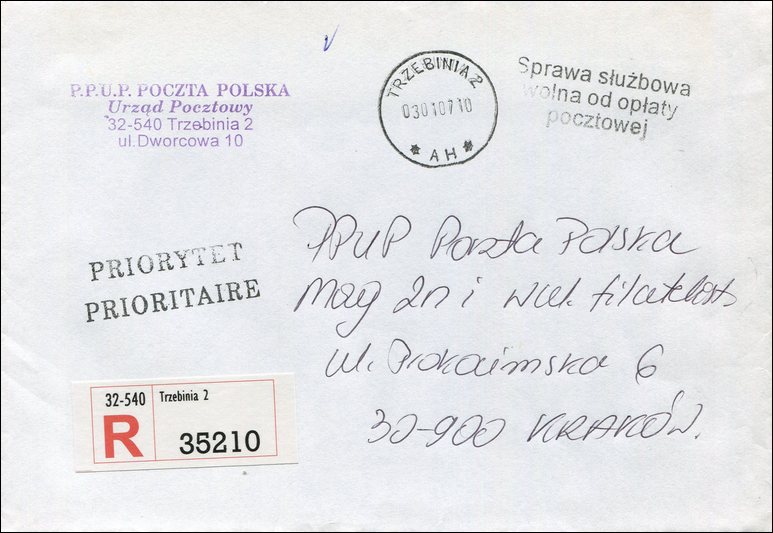 P.P.U.P. POCZTA POLSKA
Urząd Pocztowy
32-540 Trzebinia 2
ul.Dworcowa 10
TRZEBINIA 2
030107 10
* AH *
Sprawa służbowa
wolna od opłaty
pocztowej
PRIORYTET
PRIORITAIRE
PPUP Poczta Polska
Mag zn i wal. filatelist
ul. 6
30-900 KRAKÓW.
32-540 Trzebinia 2
R 35210